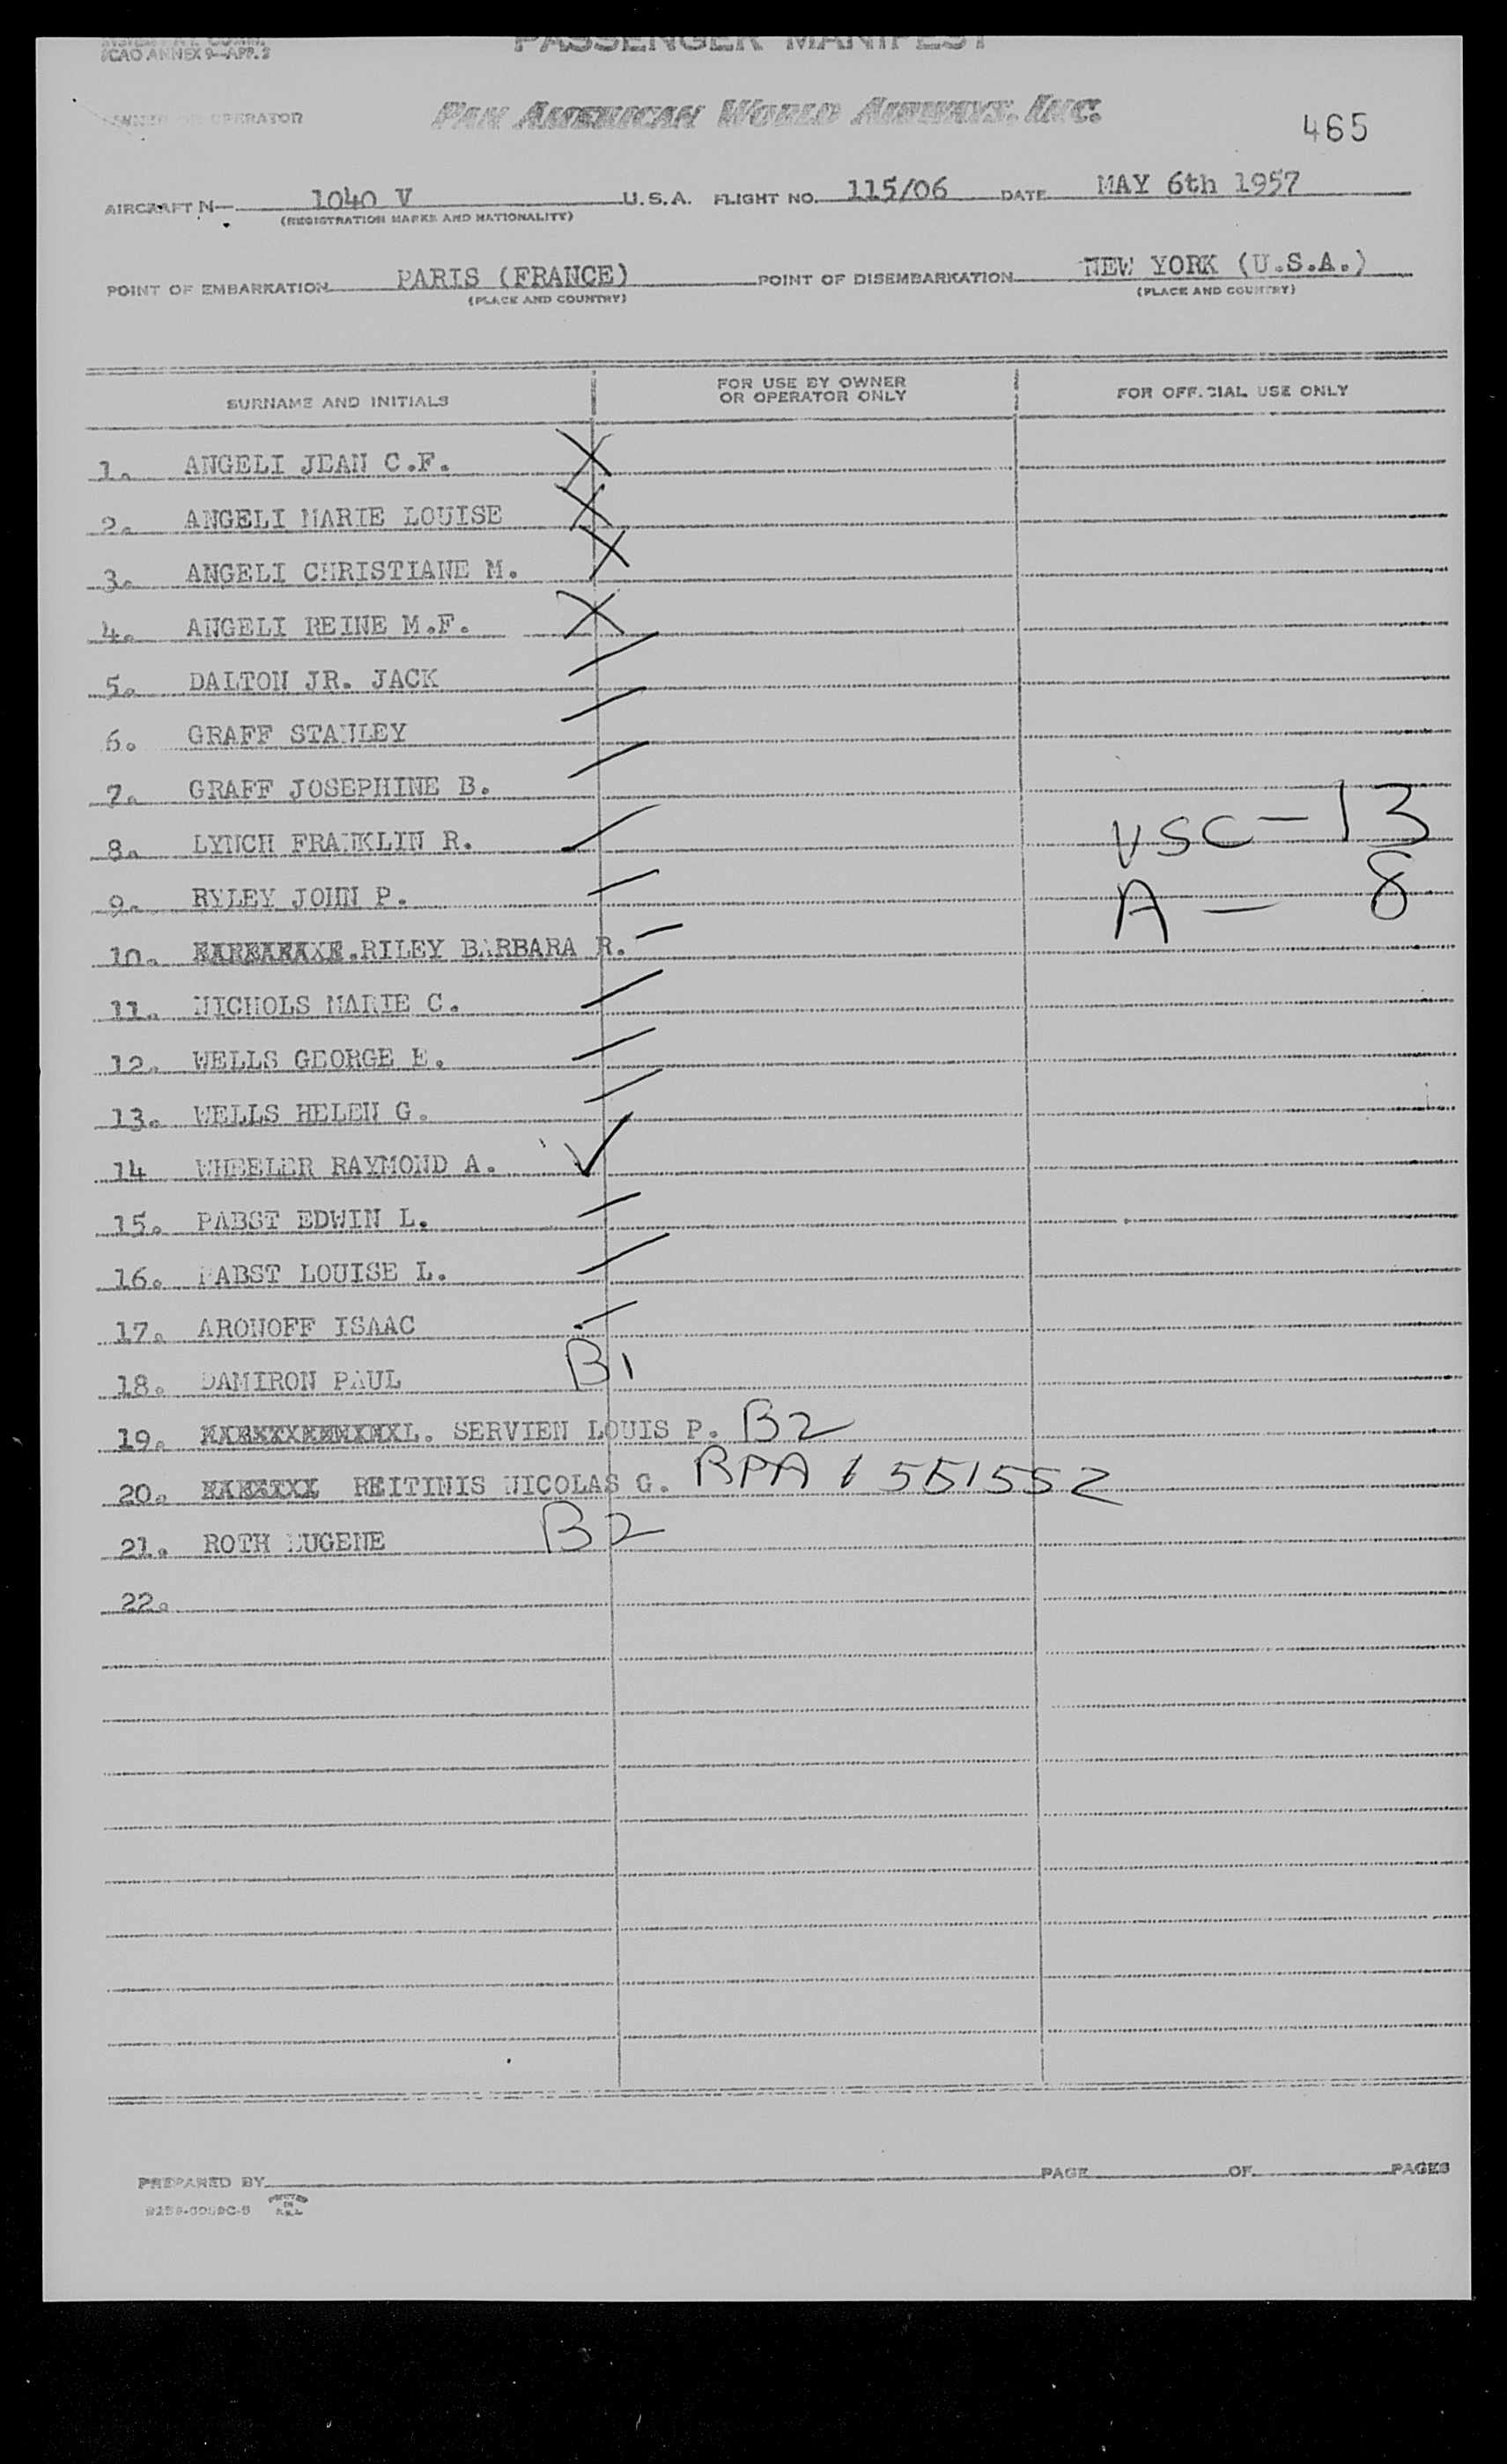 PASSENGER MANIFEST
ICAO ANNEX 9—APP. 2
OWNER OR OPERATOR
PAN AMERICAN WORLD AIRWAYS, INC.
465
AIRCRAFT N— 1040 V U.S.A. FLIGHT NO. 115/06 DATE MAY 6th 1957
(REGISTRATION MARKS AND NATIONALITY)
POINT OF EMBARKATION PARIS (FRANCE) POINT OF DISEMBARKATION NEW YORK (U.S.A.)
(PLACE AND COUNTRY) (PLACE AND COUNTRY)
SURNAME AND INITIALS FOR USE BY OWNER OR OPERATOR ONLY FOR OFFICIAL USE ONLY
1. ANGELI JEAN C.F. X
2. ANGELI MARIE LOUISE X
3. ANGELI CHRISTIANE M. X
4. ANGELI REINE M.F. X
5. DALTON JR. JACK
6. GRAFF STANLEY
7. GRAFF JOSEPHINE B.
8. LYNCH FRANKLIN R. USC — 13
9. RYLEY JOHN P. A — 8
10. RILEY BARBARA R.
11. NICHOLS MARIE C.
12. WELLS GEORGE E.
13. WELLS HELEN G.
14 WHEELER RAYMOND A. ✓
15. PABST EDWIN L.
16. PABST LOUISE L.
17. ARONOFF ISAAC
18. DAMIRON PAUL B1
19. L. SERVIEN LOUIS P. B2
20. REITINIS NICOLAS G. RPA 1551552
21. ROTH EUGENE B2
22.
PREPARED BY PAGE OF PAGES
PRINTED IN U.S.A.